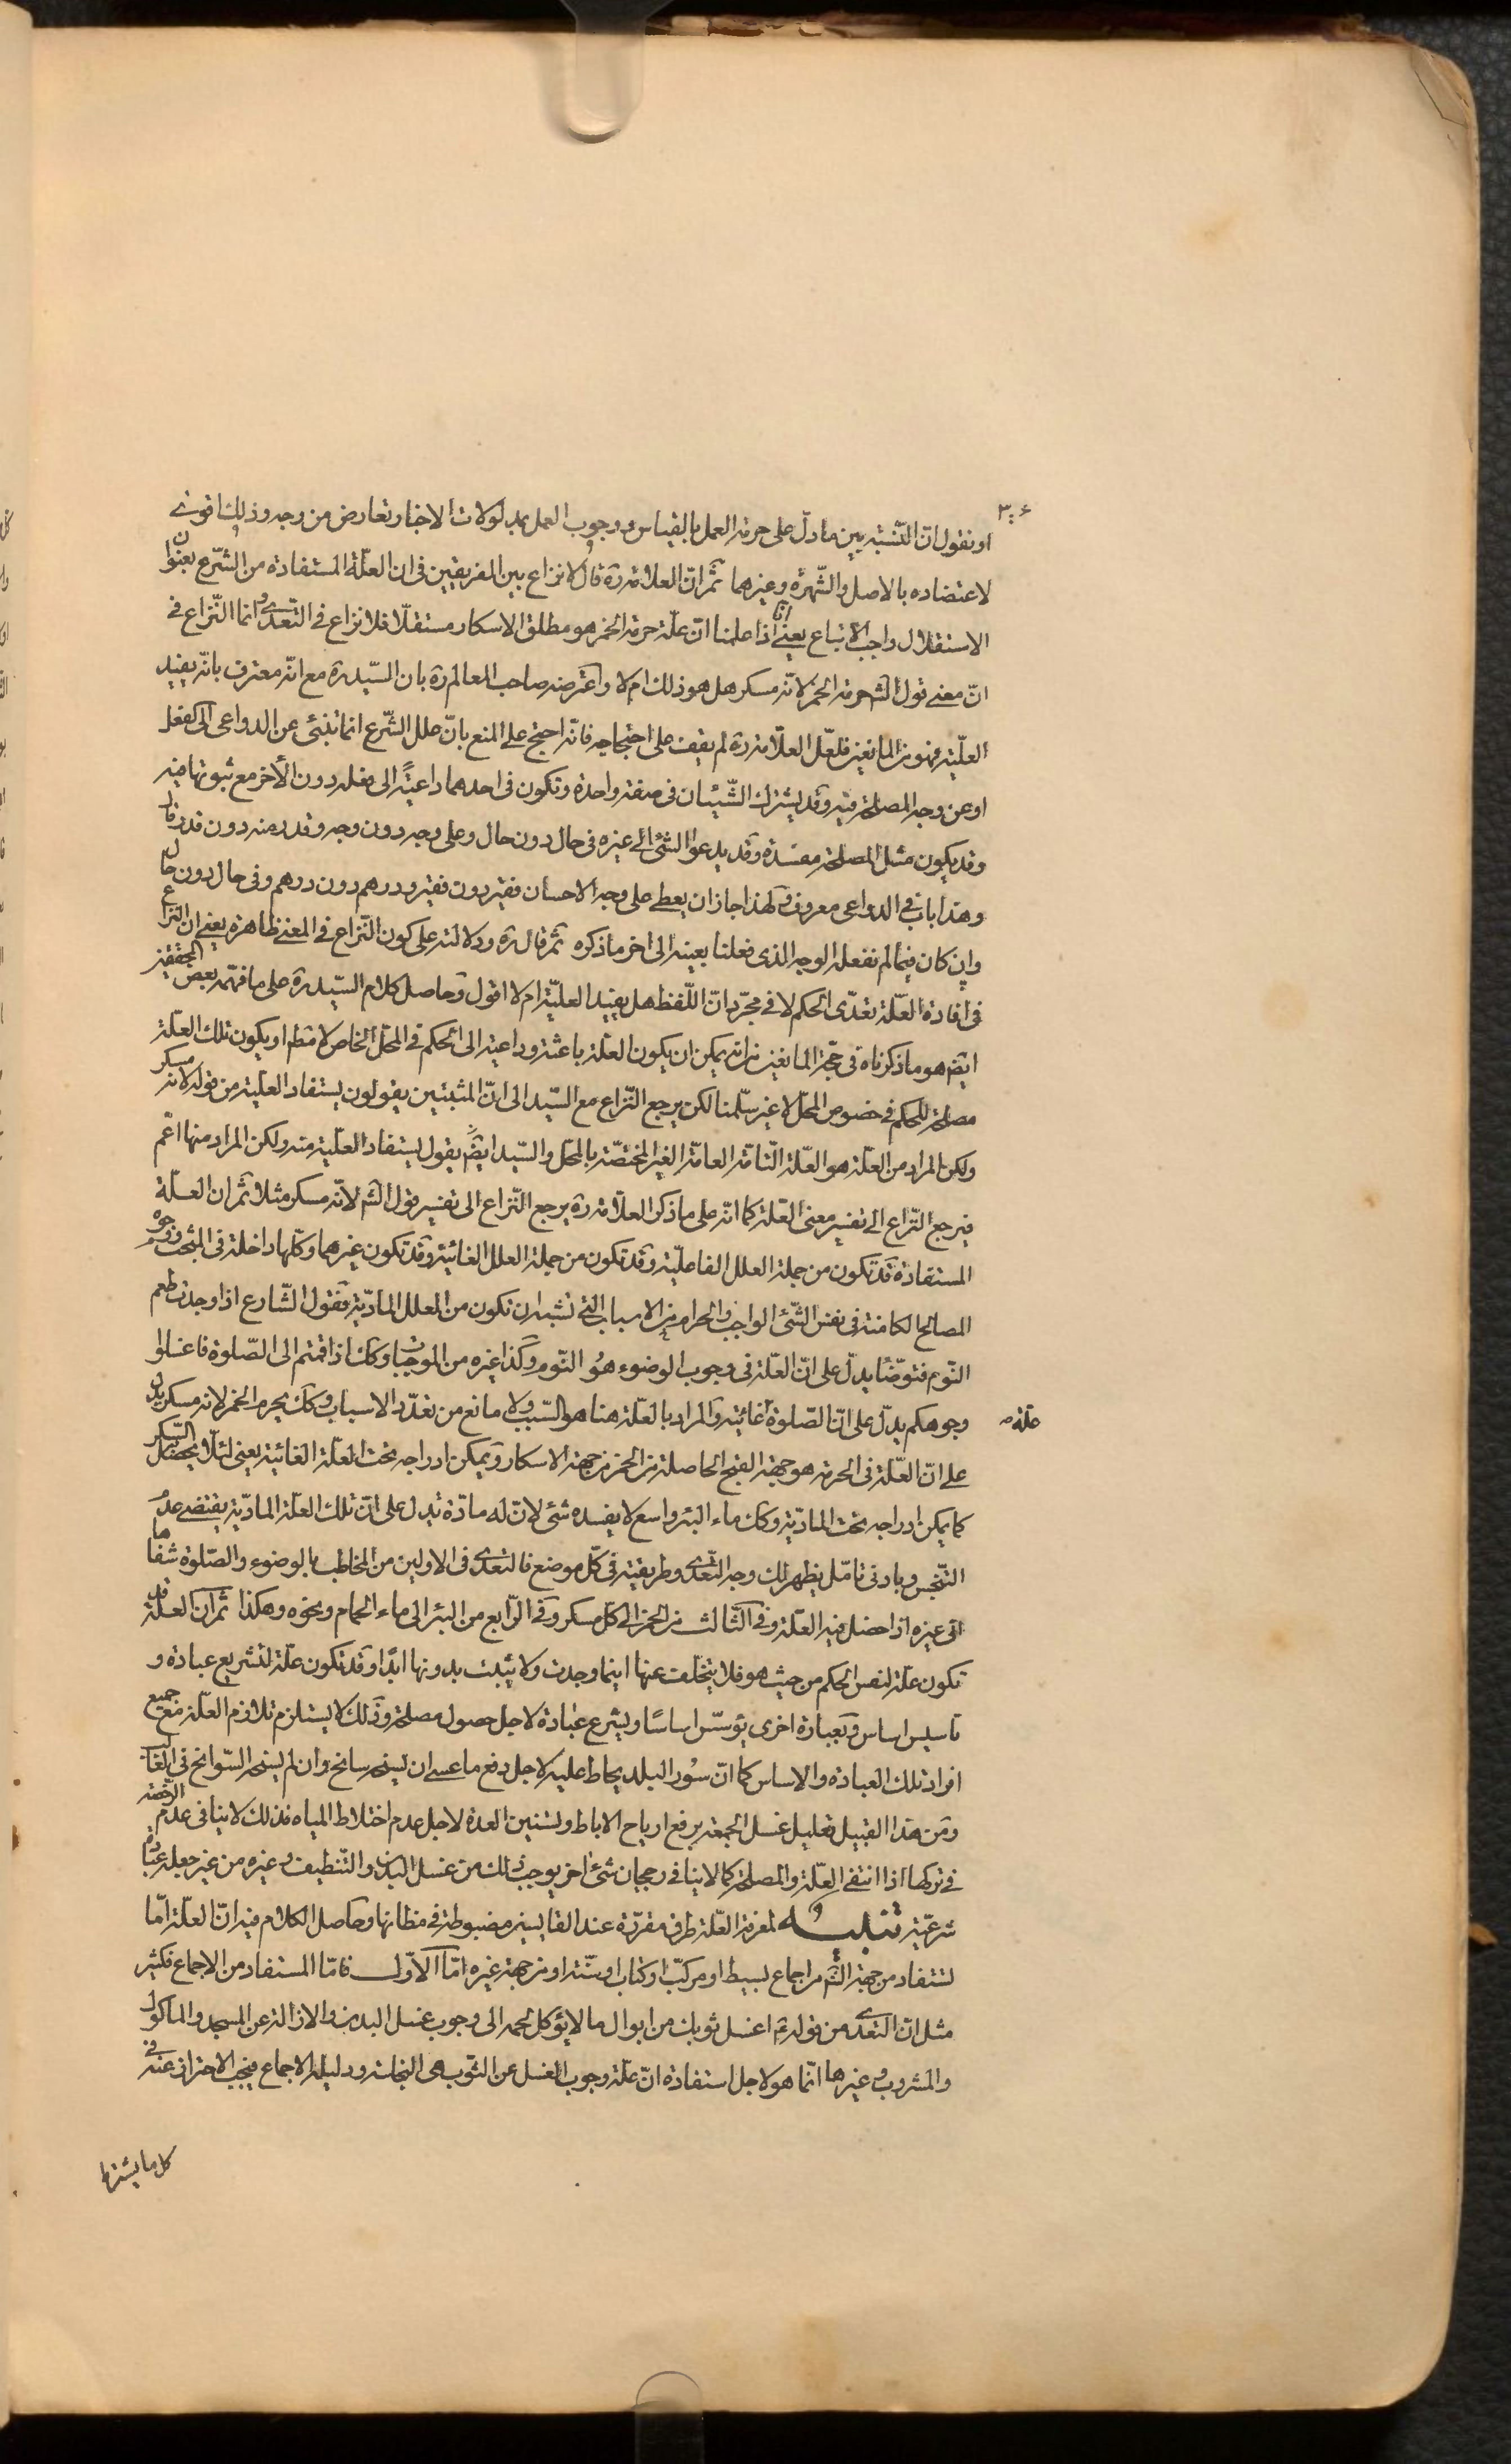 ٣٠٤
او نقول ان النسبة بين ما دلّ على حرمة العمل بالقياس و وجوب العمل بمدلولات الاخبار تعارض من وجه وذلك اقوى
لاعتضاده بالاصل والشّهرة وغيرهما ثمّ انّ العلامة ره قال لا نزاع بين الفريقين فى ان العلّة المستفادة من الشّرع بعنوان
الاستقلال واجب الاتباع يعنى انّا اذا علمنا انّ علّة حرمة الخمر هو مطلق الاسكار مستقلّا فلا نزاع فى التعدّى و انما النّزاع فى
انّ معنى قول الشه حرمة الخمر لانّه مسكر هل هو ذلك ام لا واعترضه صاحب المعالم ره بان السّيد ره مع انّه معترف بانّه يفيد
العلّية فهو من المانعين فلعّل العلّامة ره لم يقف على احتجاجه فانّه احتج على المنع بانّ علل الشّرع انما تنبئ عن الدواعى الى الفعل
او عن وجه المصلحة فيه وقد يشترك الشّيئان فى صفة واحدة وتكون فى احدهما داعيةً الى فعله دون الأخر مع ثبوتها فيه
وقد يكون مثل المصلحة مفسدة وقد يدعوا الشئ الى غيره فى حال دون حال وعلى وجه دون وجه وقدر منه دون قدر قال
وهذا باب فى الدواعى معروف ولهذا جاز ان يعطى على وجه الاحسان فقير دون فقير ودرهم دون درهم وفى حال دون حال
وان كان فيما لم نفعله الوجه الذى فعلنا بعينه الى اخر ما ذكره ثم قال ره ودلالته على كون النّزاع فى المعنى ظاهرة يعنى ان النزاع
فى افادة العلّة تعدّى الحكم لا فى مجرّد انّ اللّفظ هل يفيد العليّة ام لا اقول وحاصل كلام السّيد ره على ما فهّمه بعض المحققين
ايضه هو ما ذكرناه فى حجّة المانعين من انه يمكن ان يكون العلّة باعثة وداعية الى الحكم فى المحلّ الخاص لا مطم او يكون تلك العلّة
مصلحة للحكم فى خصوص المحلّ لا غير سلّمنا لكن يرجع النّزاع مع السّيد الى انّ المثبتين يقولون يستفاد العلّية من قوله لانه مسكر
ولكن المراد من العلّة هو العلّة التامّة العامّة الغير المختصّة بالمحلّ والسّيد ايضه يقول يستفاد العلّية منه ولكن المراد منها اعّم
فيرجع النّزاع الى تفسير معنى العّلة كما انّه على ما ذكر العلّامة ره يرجع النّزاع الى تفسير قول الشه لانّه مسكر مثلا ثمّ ان العلّة
المستفادة قد تكون من جملة العلل الفاعليّة وقد تكون من جملة العلل الغائية وقد تكون غيرهما وكلّها داخلة فى المبحث ووجوه
المصالح الكامنة فى نفس الشّئ الواجب والحرام من الاسباب التى تشبه ان تكون من العلل المادّية فقول الشّارع اذا وجدت طعم
النّوم فتوضّأ يدلّ على انّ العلّة فى وجوب الوضوء هو النّوم وكذا غيره من الموجبات وكك اذا قمتم الى الصّلوة فاغسلوا
وجوهكم يدلّ على انّ الصّلوة غائية والمراد بالعلّة هنا هو السّبب ولا مانع من تعدّد الاسباب وكك يحرم الخمر لانه مسكر يدل
علة صه
على انّ العلّة فى الحرمة هو جهة القبح الحاصلة من الخمر من جهة الاسكار ويمكن ادراجه تحت العلّة الغائية يعنى لئلّا يحصل السّكر
كما يمكن ادراجه تحت المادّية وكك ماء البئر واسع لا يفسده شئ لانّ له مادّة تدل على انّ تلك العلّة المادّية يقتضى عدم
التنّجس وبادنى تامّل يظهر لك وجه التعدّى وطريقته فى كلّ موضع فالتعدى فى الاولين من المخاطب بالوضوء والصّلوة شفاها
الى غيره اذا حصل فيه العلّة وفى الثّالث من الخمر الى كلّ مسكر وفى الرّابع من البئر الى ماء الحمام ونحوه وهكذا ثم ان العلّة قد
تكون علّة لنفس الحكم من حيث هو فلا يتخلّف عنها اينما وجدت ولا يثبت بدونها ابدًا وقد تكون علّة لتشريع عبادة و
تاسيس اساس وبعبارة اخرى يؤسّس اساسًا ويشرع عبادة لاجل حصول مصلحة وذلك لا يستلزم تلازم العلّة مع جميع
افراد تلك العبادة والاساس كما انّ سُور البلد يحاط عليه لاجل دفع ما عسى ان يسنح سانح وان لم يسنح السّوانح فى الغالب
ومن هذا القبيل تعليل غسل الجمعة برفع ارياح الاباط وتسنين العدة لاجل عدم اختلاط المياه فذلك لا ينافى عدم الرّخصة
فى تركها اذا انتفى العلّة والمصلحة كما لا ينافى رجحان شئ اخر يوجب ذلك من غسل البدن والتّنظيف وغيره من غير جعله عبادة
شرعيّة تنبيه لمعرفة العلّة طرق مقرّرة عند القايسين مضبوطة فى مظانها وحاصل الكلام فيه انّ العلّة امّا
تستفاد من جهة الشه من اجماع بسيط او مركبّ او كتاب او سنّة او من جهة غيره امّا الاوّل فامّا المستفاد من الاجماع فكثير
مثل ان التعدى من قوله ع اغسل ثوبك من ابوال ما لا يؤكل لحمه الى وجوب غسل البدن والازالة عن المسجد والماكول
والمشروب وغيرها انّما هو لاجل استفادة انّ علّة وجوب الغسل عن الثوب هى النجاسة ودليله الاجماع فيجب الاحتراز عنه فى
كل ما يشترط